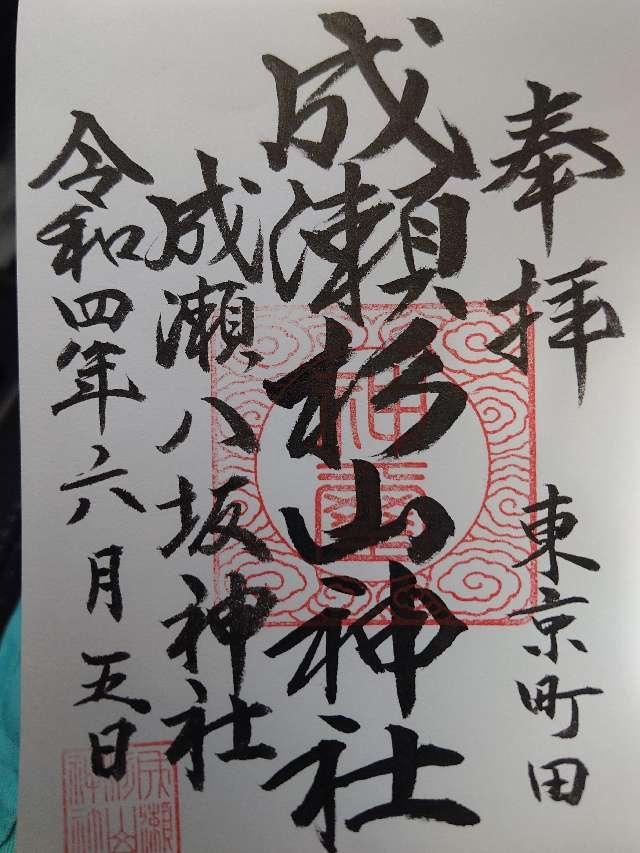 奉拝
東京町田
成瀬杉山神社
成瀬八坂神社
令和四年六月五日